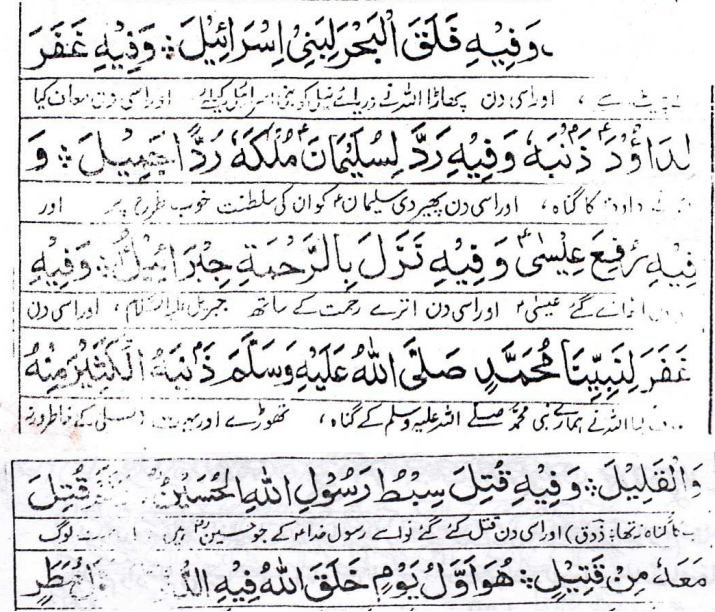 وَفِيْهِ فَلَقَ الْبَحْرَ لِبَنِىْ اِسْرَائِيْلَ ۞ وَفِيْهِ غَفَرَ
اور اسی دن پھاڑا اللہ نے دریائے نیل کو بنی اسرائیل کیلئے اور اسی دن معاف کیا
لِدَاؤُدَ ذَنْبَهٗ وَفِيْهِ رَدَّ لِسُلَيْمَانَ مُلْكَهٗ رَدًّا جَمِيْلَ ۞ وَ
داود کا گناہ ، اور اسی دن پھیر دی سلیمان ؑ کو ان کی سلطنت خوب طرح اور
فِيْهِ رُفِعَ عِيْسٰى وَفِيْهِ نَزَلَ بِالرَّحْمَةِ جِبْرَائِيْلُ ۞ وَفِيْهِ
گئے عیسٰی ؑ اور اسی دن اترے رحمت کے ساتھ جبریل ، اور اسی دن
غَفَرَ لِنَبِيِّنَا مُحَمَّدٍ صَلَّى اللهُ عَلَيْهِ وَسَلَّمَ ذَنْبَهُ الْكَثِيْرَ مِنْهُ
اللہ نے ہمارے نبی محمد صلے اللہ علیہ وسلم کے گناہ ، تھوڑے اور
وَالْقَلِيْلَ ۞ وَفِيْهِ قُتِلَ سِبْطُ رَسُوْلِ اللهِ الْحُسَيْنُ قُتِلَ
اور اسی دن قتل کئے گئے نواسے رسول خدا ؐ کے جو حسین ؓ ہیں لوگ
مَعَهٗ مِنْ قَتِيْلٍ ۞ هُوَ اَوَّلُ يَوْمٍ خَلَقَ اللهُ فِيْهِ